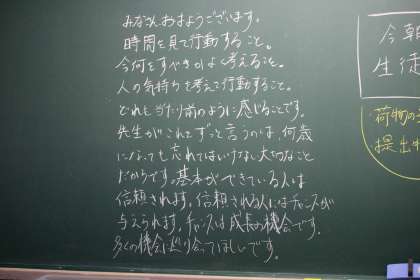 みなさんおはようございます。
時間を見て行動すること。
今何をすべきかよく考えること。
人の気持ちを考えて行動すること。
どれも当たり前のように感じることです。
先生がこれをずっと言うのは、何歳
になっても忘れてはいけない大切なこと
だからです。基本ができている人は
信頼されます。信頼される人にはチャンスが
与えられます。チャンスは成長の機会です。
多くの機会に巡り会ってほしいです。
今朝
生徒
荷物の
提出物